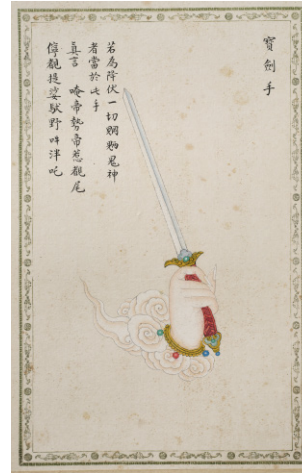 寶劍手
若為降伏一切魍魎鬼神
者當於此手
真言 唵帝勢帝惹覩尾
覩提娑馱野吽泮吒